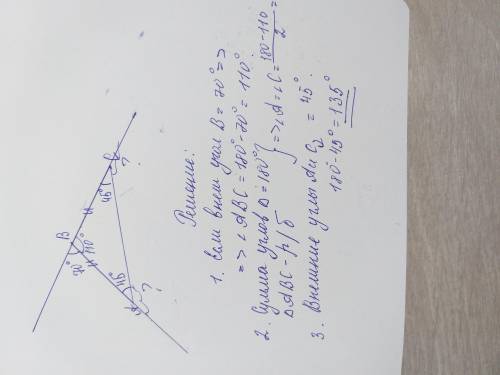 B
70°
110°
45°
45°
C
?
A
?
Решение:
1. Если внеш угол B = 70° =>
=> ∠ABC = 180° - 70° = 110°
2. Сумма углов Δ = 180°
ΔABC - р/б } => ∠A = ∠C = 180 - 110 / 2 =
= 45°.
3. Внешние углы A и C
180 - 45° = 135°